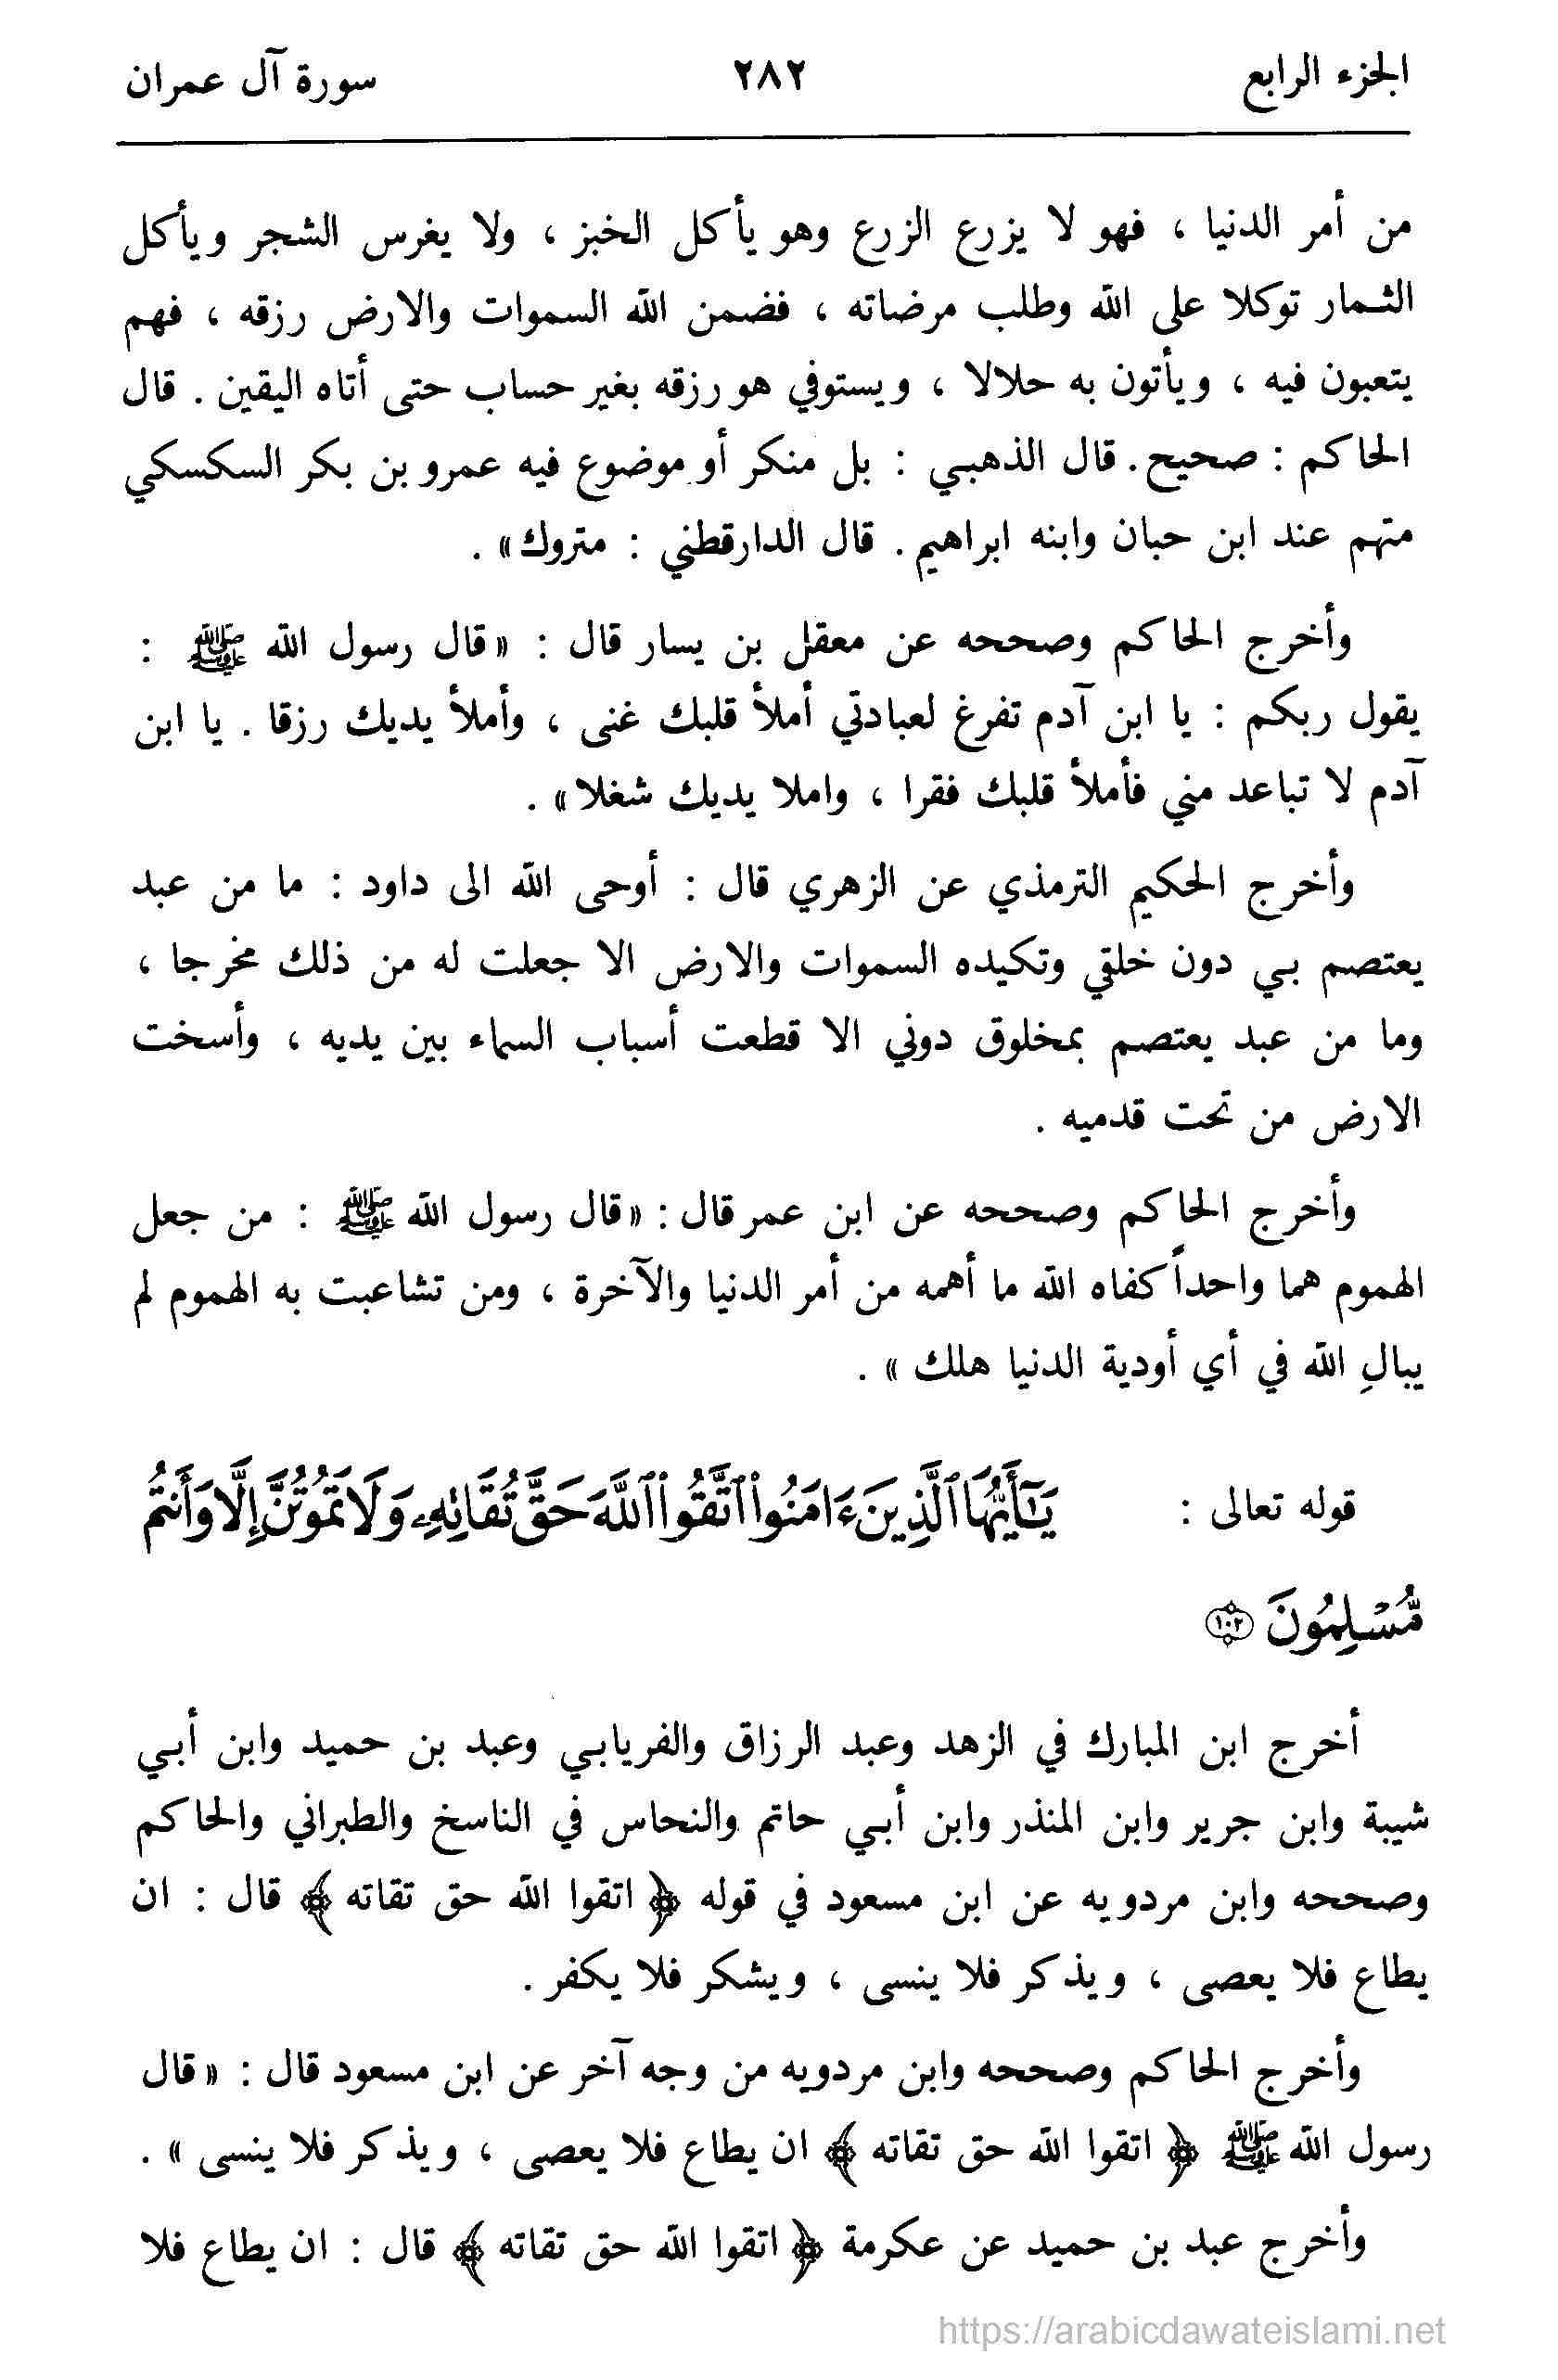 الجزء الرابع ٢٨٢ سورة آل عمران
من أمر الدنيا ، فهو لا يزرع الزرع وهو يأكل الخبز ، ولا يغرس الشجر ويأكل
الثمار توكلا على الله وطلب مرضاته ، فضمن الله السموات والارض رزقه ، فهم
يتعبون فيه ، ويأتون به حلالا ، ويستوفي هو رزقه بغير حساب حتى أتاه اليقين . قال
الحاكم : صحيح . قال الذهبي : بل منكر أو موضوع فيه عمرو بن بكر السكسكي
متهم عند ابن حبان وابنه ابراهيم . قال الدارقطني : متروك» .
وأخرج الحاكم وصححه عن معقل بن يسار قال : «قال رسول الله ﷺ :
يقول ربكم : يا ابن آدم تفرغ لعبادتي أملأ قلبك غنى ، وأملأ يديك رزقا . يا ابن
آدم لا تباعد مني فأملأ قلبك فقرا ، واملا يديك شغلا» .
وأخرج الحكيم الترمذي عن الزهري قال : أوحى الله الى داود : ما من عبد
يعتصم بي دون خلقي وتكيده السموات والارض الا جعلت له من ذلك مخرجا ،
وما من عبد يعتصم بمخلوق دوني الا قطعت أسباب السماء بين يديه ، وأسخت
الارض من تحت قدميه .
وأخرج الحاكم وصححه عن ابن عمر قال : «قال رسول الله ﷺ : من جعل
الهموم هما واحداً كفاه الله ما أهمه من أمر الدنيا والآخرة ، ومن تشاعبت به الهموم لم
يبالِ الله في أي أودية الدنيا هلك » .
قوله تعالى : يَٰٓأَيُّهَا ٱلَّذِينَ ءَامَنُوا۟ ٱتَّقُوا۟ ٱللَّهَ حَقَّ تُقَاتِهِۦ وَلَا تَمُوتُنَّ إِلَّا وَأَنتُم
مُّسْلِمُونَ ١٠٢
أخرج ابن المبارك في الزهد وعبد الرزاق والفريابي وعبد بن حميد وابن أبي
شيبة وابن جرير وابن المنذر وابن أبي حاتم والنحاس في الناسخ والطبراني والحاكم
وصححه وابن مردويه عن ابن مسعود في قوله ﴿ اتقوا الله حق تقاته ﴾ قال : ان
يطاع فلا يعصى ، ويذكر فلا ينسى ، ويشكر فلا يكفر .
وأخرج الحاكم وصححه وابن مردويه من وجه آخر عن ابن مسعود قال : «قال
رسول الله ﷺ ﴿ اتقوا الله حق تقاته ﴾ ان يطاع فلا يعصى ، ويذكر فلا ينسى » .
وأخرج عبد بن حميد عن عكرمة ﴿ اتقوا الله حق تقاته ﴾ قال : ان يطاع فلا
https://arabicdawateislami.net